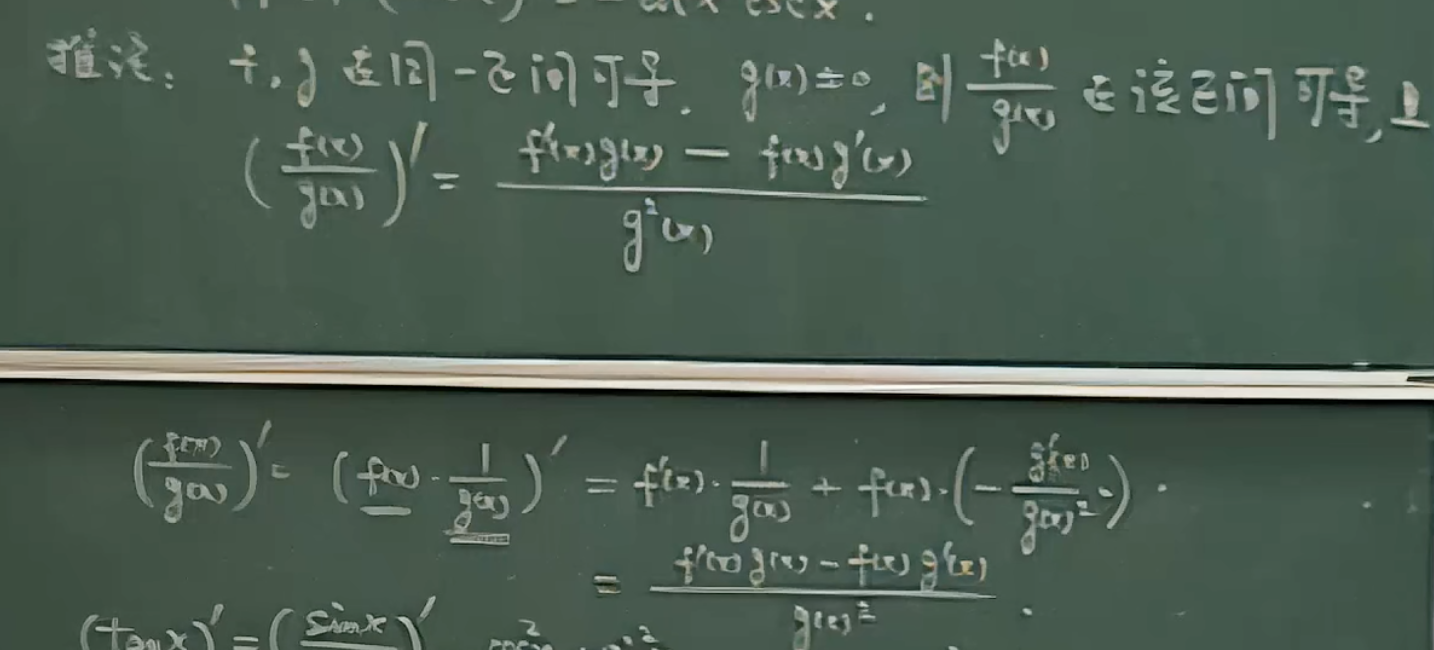 = -cotx cscx.
推论: f, g 在同一区间可导, g(x)≠0, 则 f(x)/g(x) 在该区间可导, 且
(f(x)/g(x))' = (f'(x)g(x) - f(x)g'(x))/g²(x)
(f(x)/g(x))' = (f(x)·1/g(x))' = f'(x)·1/g(x) + f(x)·(-g'(x)/g(x)²).
= (f'(x)g(x) - f(x)g'(x))/g(x)².
(tanx)' = (sinx